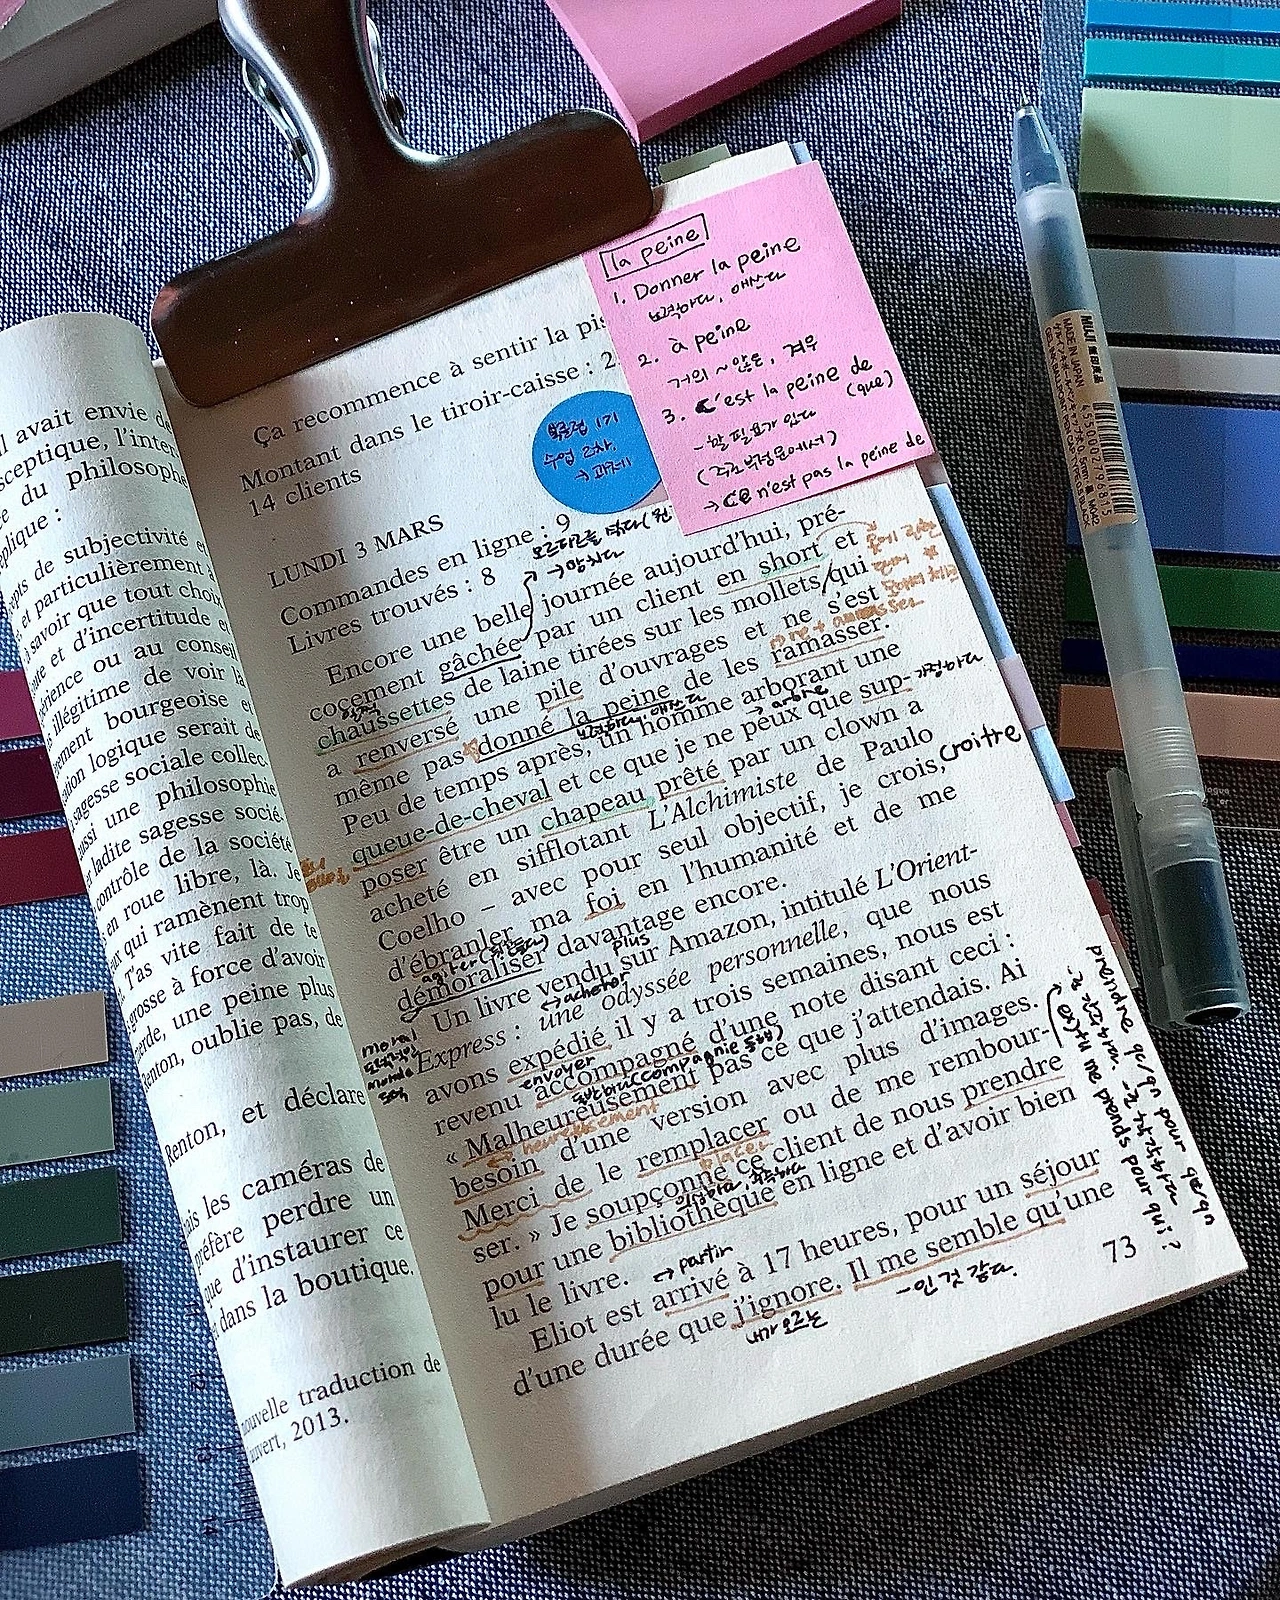 l avait envie de
sceptique, l'inter
e du philosophe
plique :
pts de subjectivité et
, et particulièrement à
savoir que tout choix
ute et d'incertitude et
périence ou au conseil
illégitime de voir la
rement bourgeoise et
sion logique serait de
sagesse sociale collec-
aussi une philosophie
er ladite sagesse socié-
contrôle de la société
en roue libre, là. Je
ux qui ramènent trop
T'as vite fait de te
grosse à force d'avoir
garde, une peine plus
Renton, oublie pas, de
Renton, et déclare
ais les caméras de
préfère perdre un
que d'instaurer ce
dans la boutique.
nouvelle traduction de
uvert, 2013.
Ça recommence à sentir la pis
Montant dans le tiroir-caisse : 2
14 clients
LUNDI 3 MARS
Commandes en ligne : 9
Livres trouvés : 8
Encore une belle journée aujourd'hui, pré-
cocement gâchée par un client en short et
chaussettes de laine tirées sur les mollets qui
a renversé une pile d'ouvrages et ne s'est
même pas donné la peine de les ramasser.
Peu de temps après, un homme arborant une
queue-de-cheval et ce que je ne peux que sup-
poser être un chapeau prêté par un clown a
acheté en sifflotant L'Alchimiste de Paulo
Coelho – avec pour seul objectif, je crois,
d'ébranler ma foi en l'humanité et de me
démoraliser davantage encore.
Un livre vendu sur Amazon, intitulé L'Orient-
Express : une odyssée personnelle, que nous
avons expédié il y a trois semaines, nous est
revenu accompagné d'une note disant ceci :
« Malheureusement pas ce que j'attendais. Ai
besoin d'une version avec plus d'images.
Merci de le remplacer ou de me rembour-
ser. » Je soupçonne ce client de nous prendre
pour une bibliothèque en ligne et d'avoir bien
lu le livre.
Eliot est arrivé à 17 heures, pour un séjour
d'une durée que j'ignore. Il me semble qu'une
73
la peine
1. Donner la peine
노력하다, 애쓰다
2. à peine
거의 ~ 않은, 겨우
3. C'est la peine de
(que)
~할 필요가 있다
(주로 부정문에서)
→ Ce n'est pas la peine de
수업 2차.
→ 과제
→ 망치다
가정하다
croître
plus
↔ acheter
envoyer
moral
↔ heureusement
placer
↔ partir
~인 것 같다.
내가 모르는
prendre qc/qn pour qc/qn
me prends pour qui?
MUJI 無印良品
MADE IN JAPAN